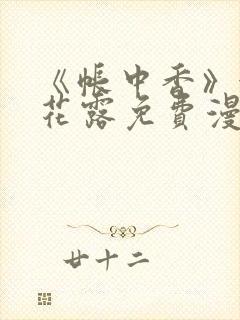 《帐中香》
花露免费漫
廿十二